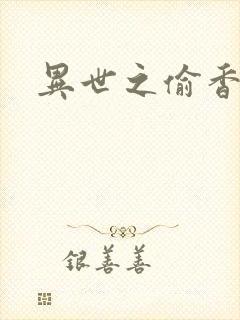 異世之偷香
银善善